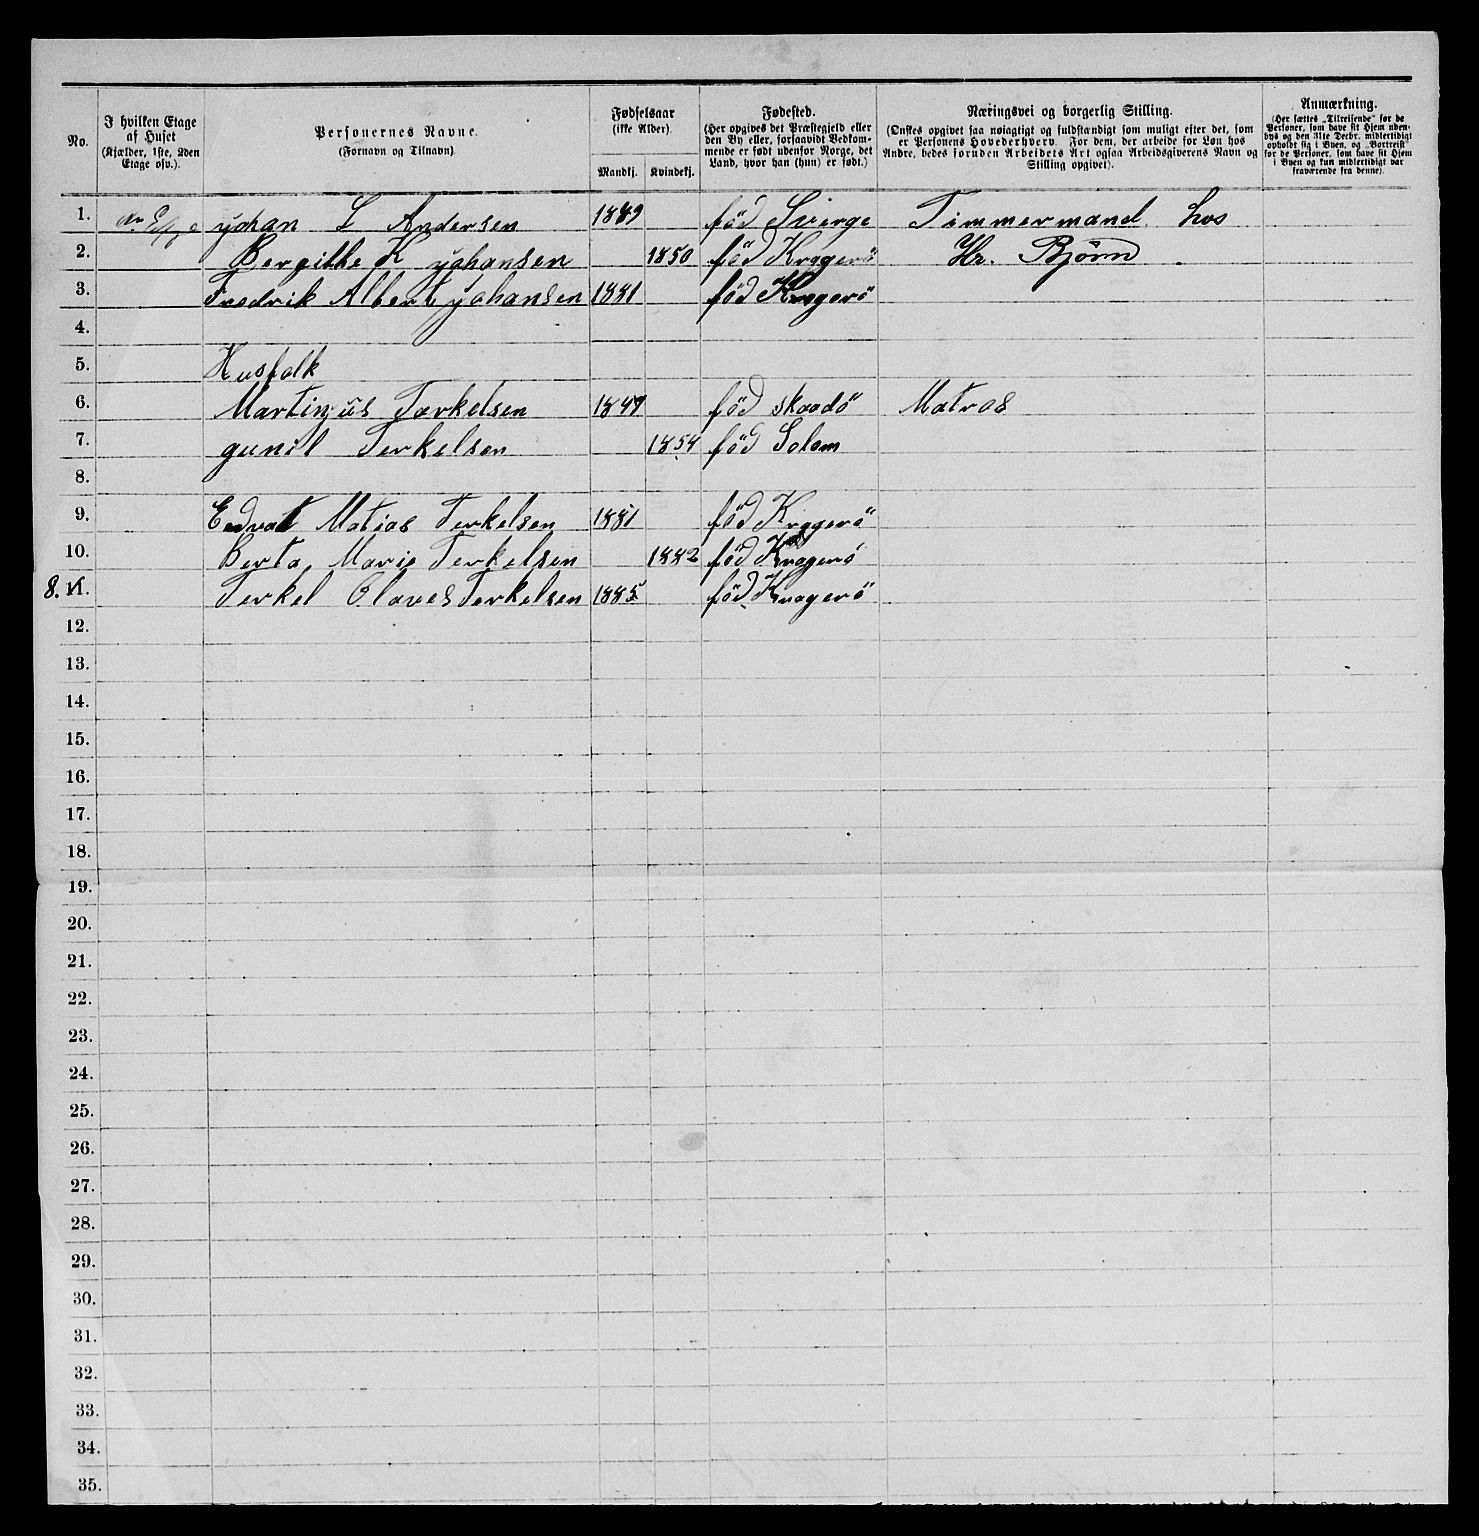 No.
I hvilken Etage af Huset
(Kjælder, 1ste, 2den Etage osv.).
Personernes Navne.
(Fornavn og Tilnavn).
Fødselsaar
(ikke Alder).
Mandkj. Kvindekj.
Fødested.
(Her opgives det Præstegjeld eller
den By eller, forsaavidt Vedkom-
mende er født udenfor Norge, det
Land, hvor han (hun) er født.)
Næringsvei og borgerlig Stilling.
(Ønskes opgivet saa nøiagtigt og fuldstændigt som muligt efter det, som
er Personens Hovederhverv. For dem, der arbeide for Løn hos
Andre, bedes foruden Arbeidets Art ogsaa Arbeidsgiverens Navn og
Stilling opgivet).
Anmærkning.
(Her sættes „Tilreisende" for de
Personer, som have sit Hjem uden-
bys og den 31te Decbr. midlertidigt
opholdt sig i Byen, og „Bortreist"
for de Personer, som have sit Hjem
i Byen og kun midlertidigt var
fraværende fra denne).
1. yohan L Andersen föd Sverge Timmermand hos
2. Bergithe K yohansen 1850 föd Kragerö Hr. Bjørn
3. Fredrik Albert yohansen 1881 föd Kragerö
4.
5. Husfolk
6. Martinjus Tærkelsen föd skaadö Matros
7. gunil Terkelsen 1854 föd Solom
8.
9. Edvat Matias Terkelsen 1881 föd Kragerö
10. Berta Marie Terkelsen 1882 föd Kragerö
8. 11. Terkel Olaves Terkelsen 1885 föd Kragerö
12.
13.
14.
15.
16.
17.
18.
19.
20.
21.
22.
23.
24.
25.
26.
27.
28.
29.
30.
31.
32.
33.
34.
35.